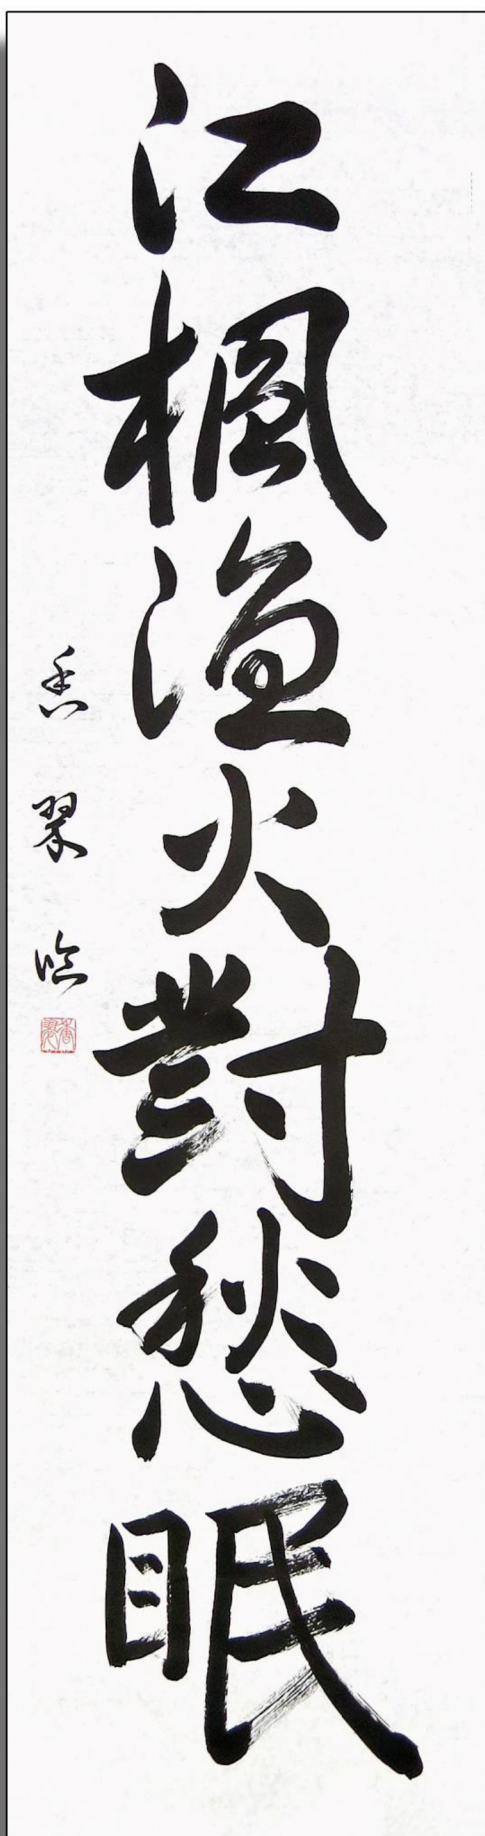 江楓漁火對愁眠
香翠臨